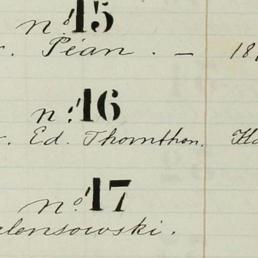 no. 15
. Péan. — 18
no. 16
. Ed. Thornthon. Ha
no. 17
alensowski.